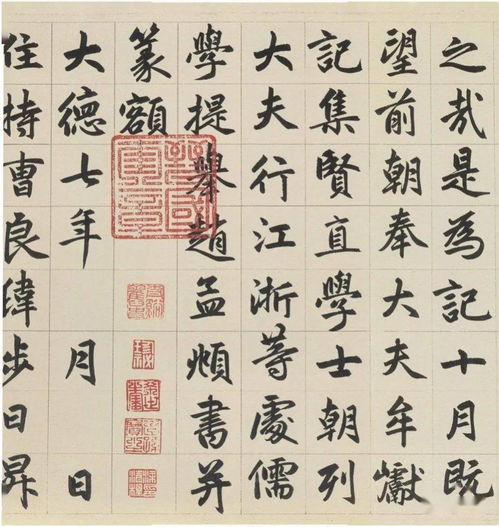 之哉是為記十月既
望前朝奉大夫牟巘
記集賢直學士朝列
大夫行江浙等處儒
學提舉趙孟頫書并
篆額
大德七年　月　日
住持曺良瑋步日昇